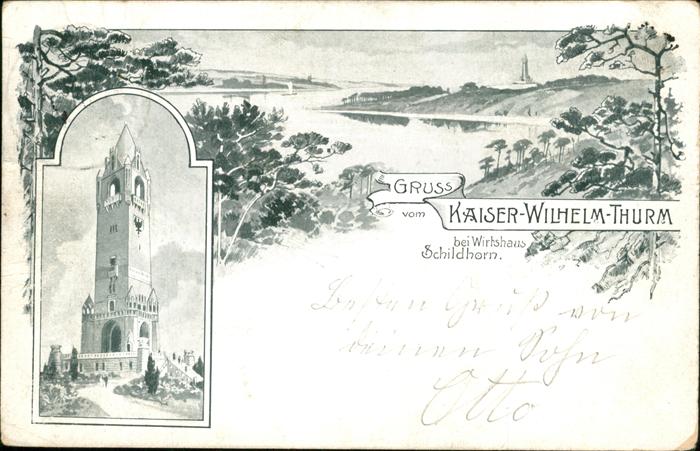 GRUSS
vom KAISER-WILHELM-THURM
bei Wirtshaus
Schildhorn.
Besten Gruß von
deinen Sohn
Otto